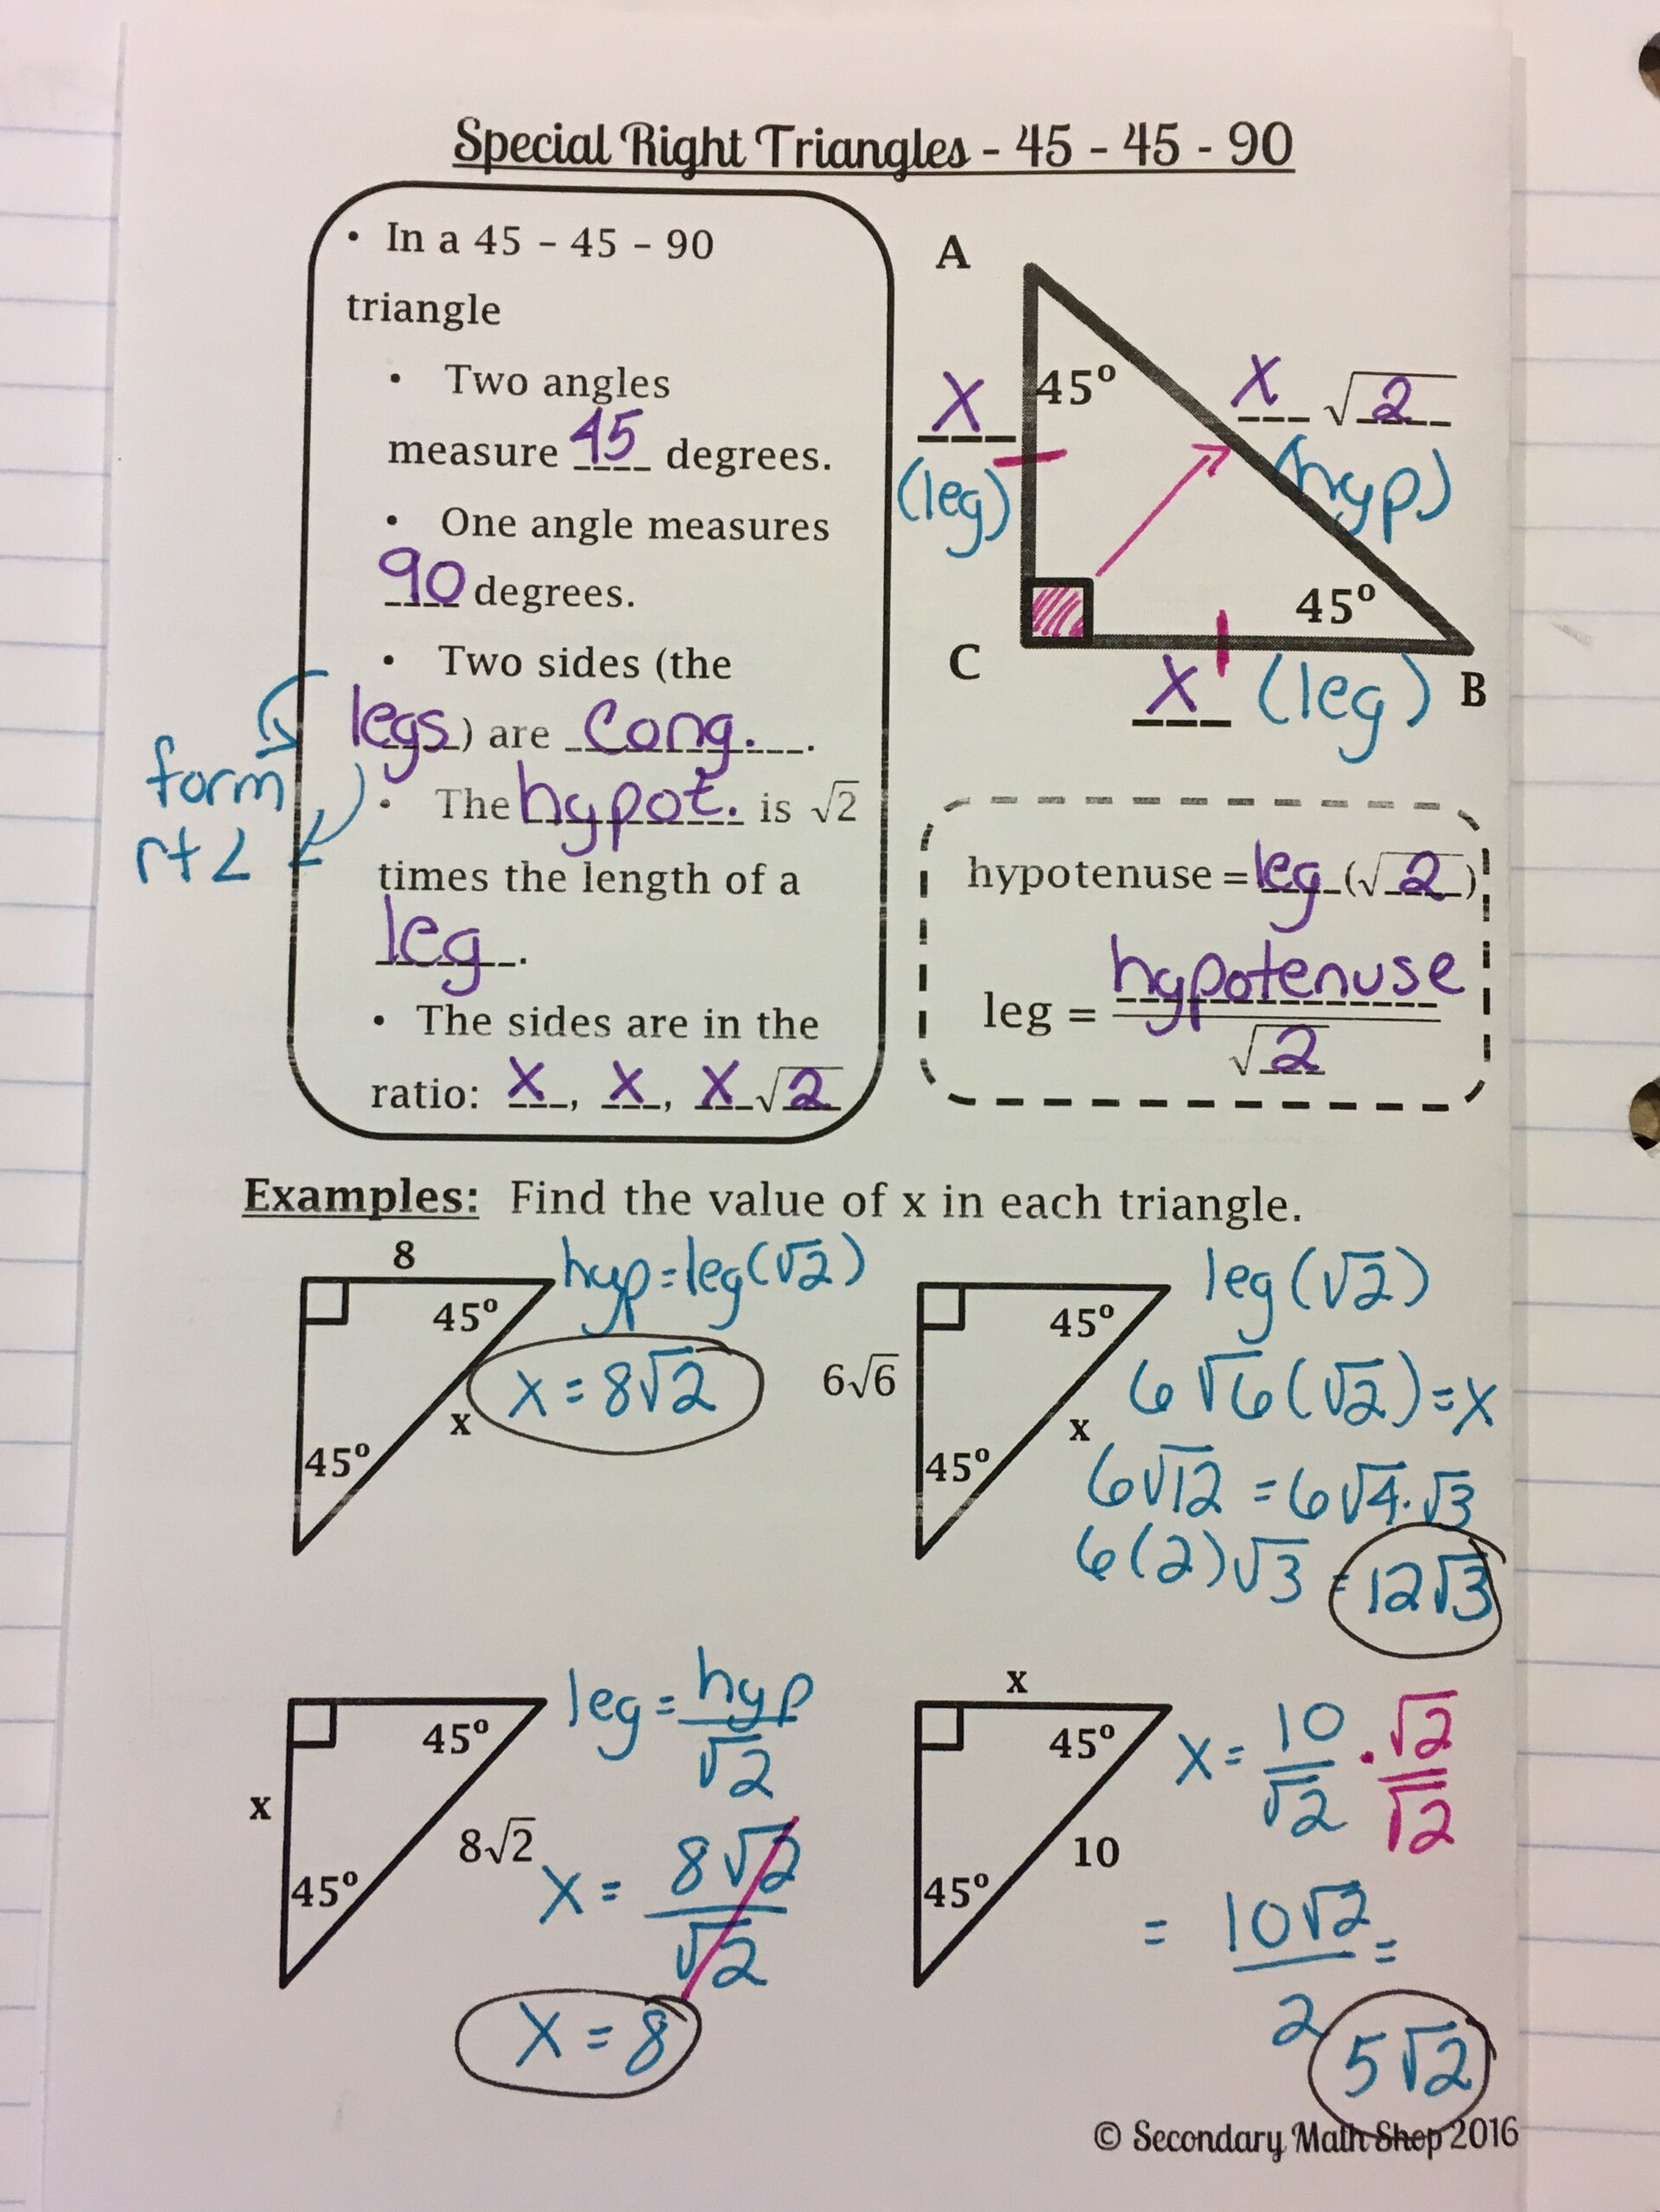 Special Right Triangles - 45 - 45 - 90
• In a 45 – 45 – 90
triangle
• Two angles
measure 45 degrees.
• One angle measures
90 degrees.
• Two sides (the
legs) are cong.
form
rt ∠
• The hypot. is √2
times the length of a
leg.
• The sides are in the
ratio: x, x, x√2
A
45°
x
(leg)
x √2
(hyp)
45°
C
x (leg)
B
hypotenuse = leg (√2)
leg = hypotenuse
√2
Examples: Find the value of x in each triangle.
8
45°
45°
x
hyp = leg(√2)
x = 8√2
6√6
45°
45°
x
leg (√2)
6√6(√2) = x
6√12 = 6√4·√3
6(2)√3 = 12√3
x
45°
45°
8√2
leg = hyp
√2
x = 8√2
√2
x = 8
x
45°
45°
10
x = 10/√2 · √2/√2
= 10√2/2 =
5√2
© Secondary Math Shop 2016